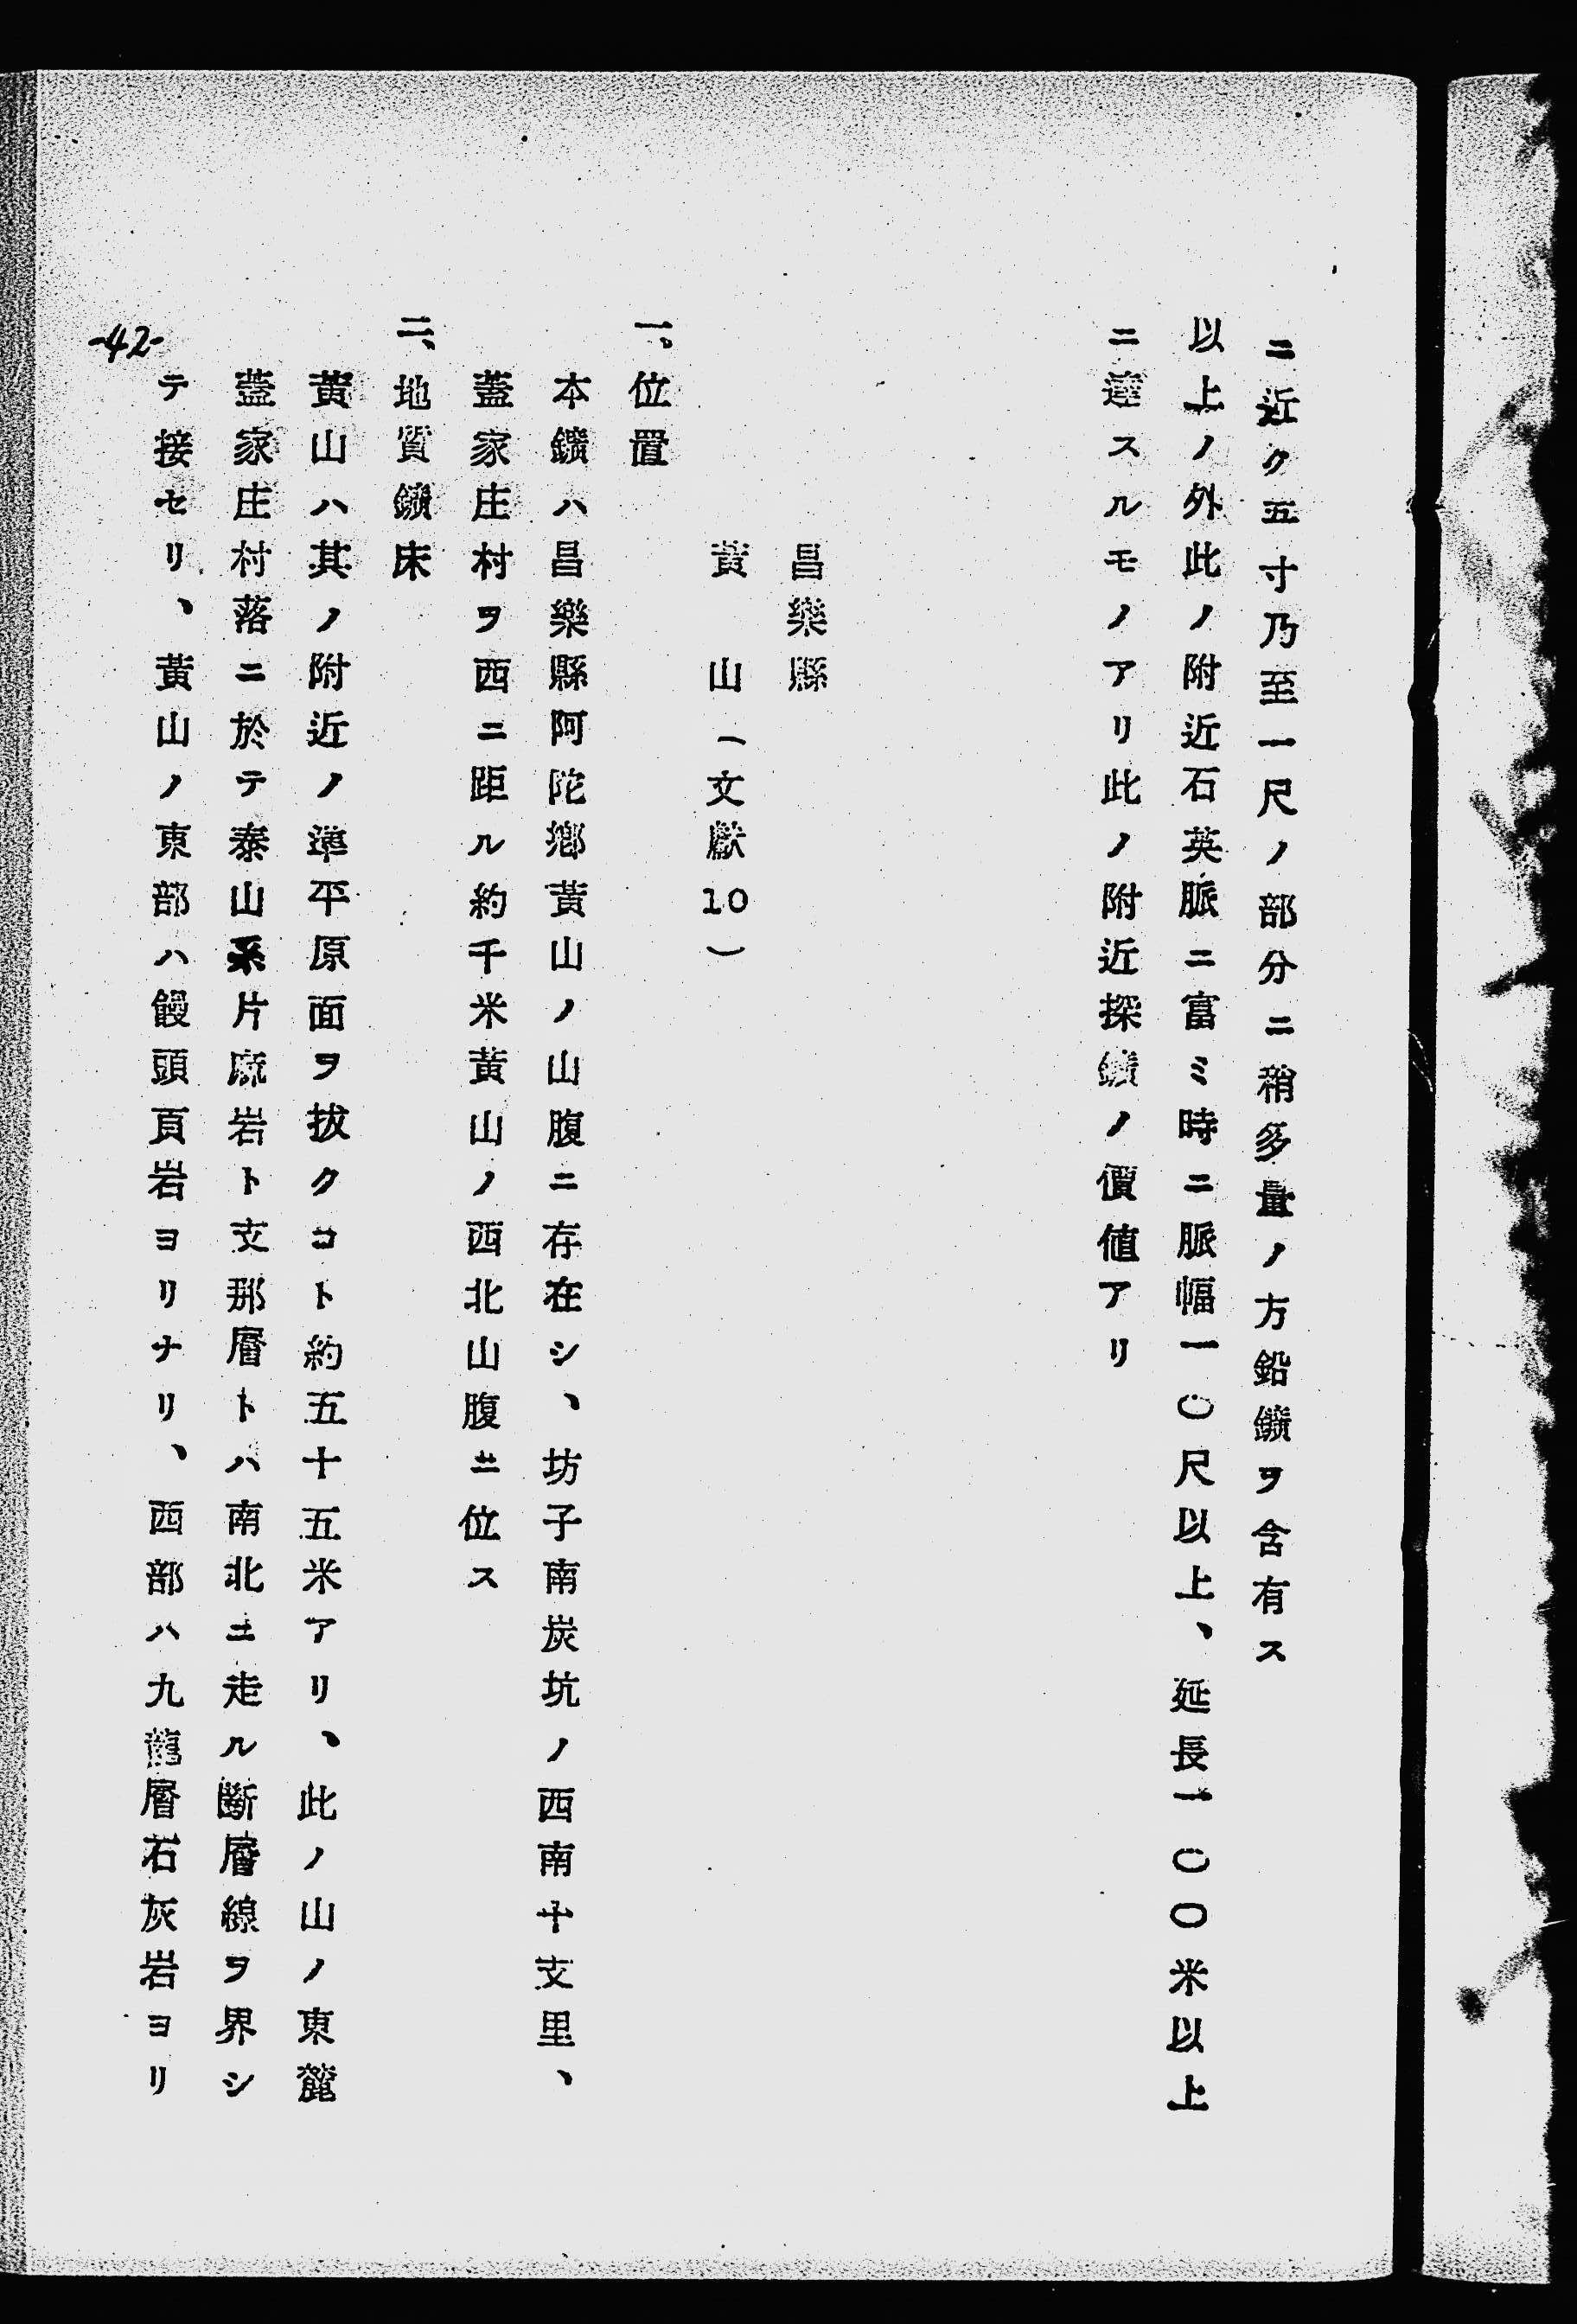 ニ近ク五寸乃至一尺ノ部分ニ稍多量ノ方鉛鑛ヲ含有ス
以上ノ外此ノ附近石英脈ニ富ミ時ニ脈幅一〇尺以上、延長一〇〇米以上
ニ達スルモノアリ此ノ附近探鑛ノ價値アリ
昌樂縣
黃山（文獻10）
一、位置
本鑛ハ昌樂縣阿陀鄕黃山ノ山腹ニ存在シ、坊子南炭坑ノ西南十支里、
蓋家庄村ヲ西ニ距ル約千米黃山ノ西北山腹ニ位ス
二、地質鑛床
黃山ハ其ノ附近ノ準平原面ヲ拔クコト約五十五米アリ、此ノ山ノ東麓
蓋家庄村落ニ於テ泰山系片麻岩ト支那層トハ南北ニ走ル斷層線ヲ界シ
テ接セリ、黃山ノ東部ハ饅頭頁岩ヨリナリ、西部ハ九龍層石灰岩ヨリ
-42-